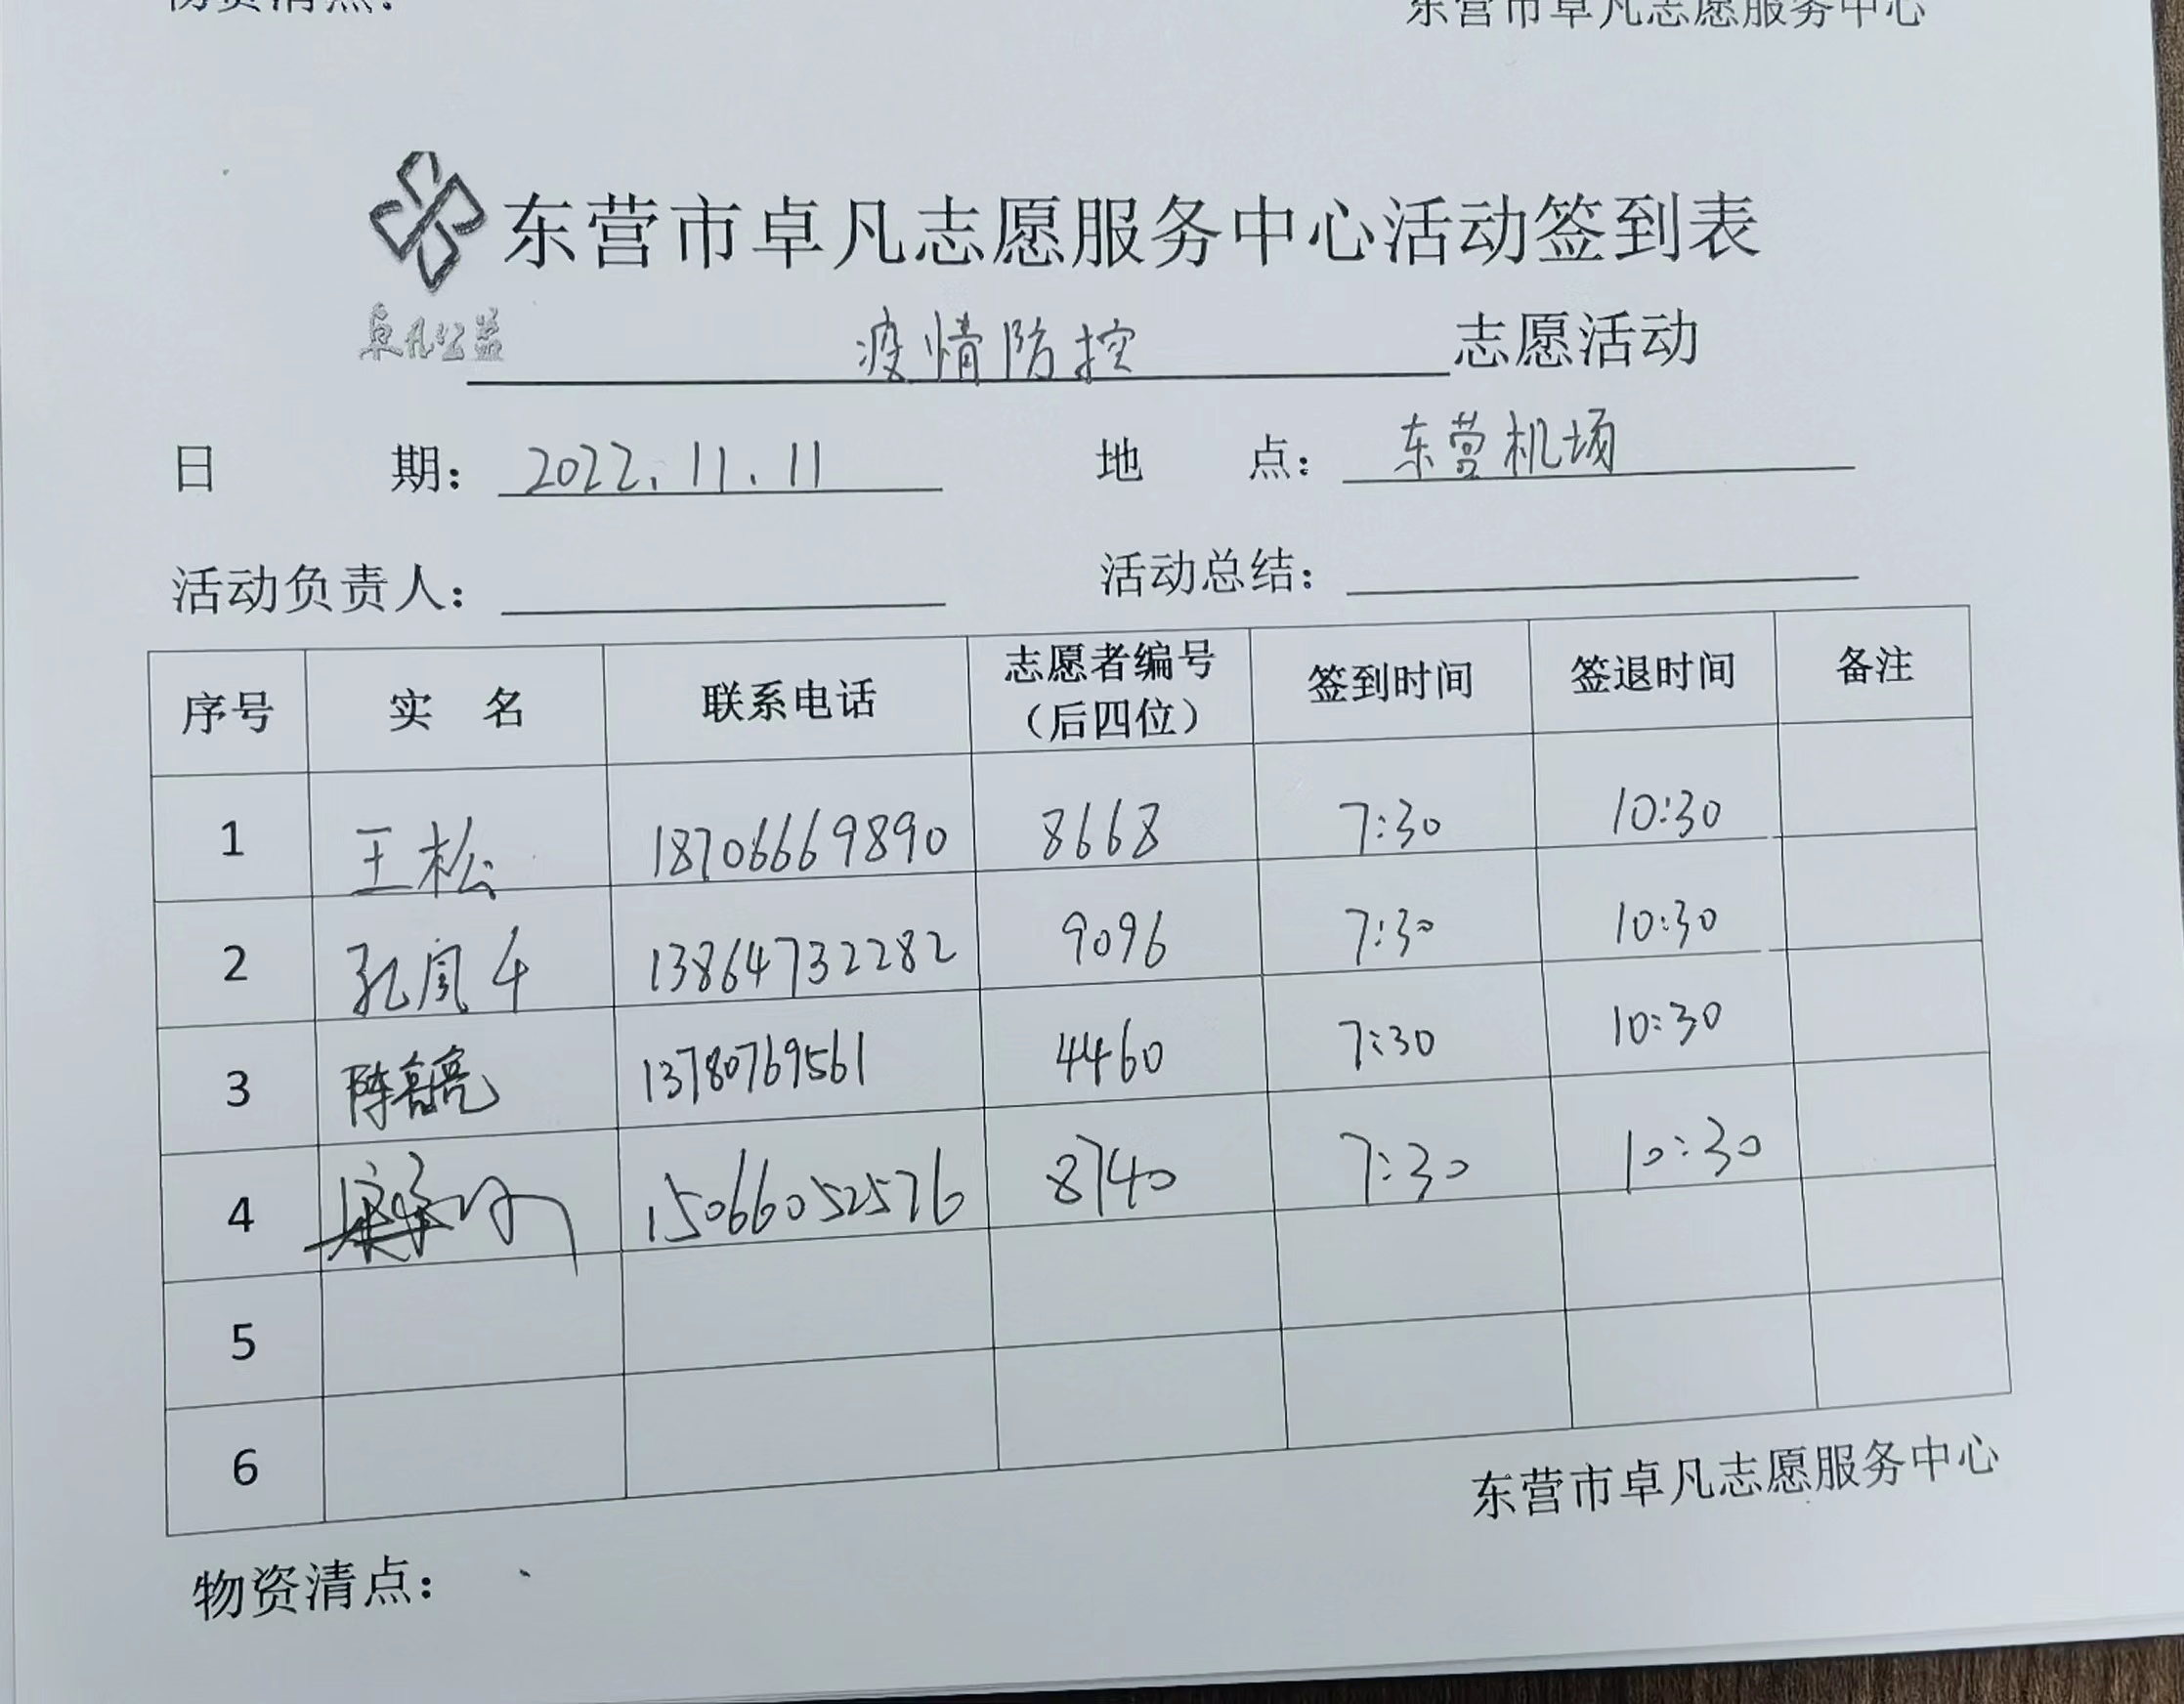 物资清点：
东营市卓凡志愿服务中心
东营市卓凡志愿服务中心活动签到表
卓凡公益
疫情防控 志愿活动
日 期： 2022.11.11 地 点： 东营机场
活动负责人： 活动总结：
序号 实 名 联系电话 志愿者编号（后四位） 签到时间 签退时间 备注
1 王松 18706669890 8668 7:30 10:30
2 孔凤 13864732282 9096 7:30 10:30
3 陈亮 13780769561 4460 7:30 10:30
4 15066052576 8740 7:30 10:30
5
6
东营市卓凡志愿服务中心
物资清点：